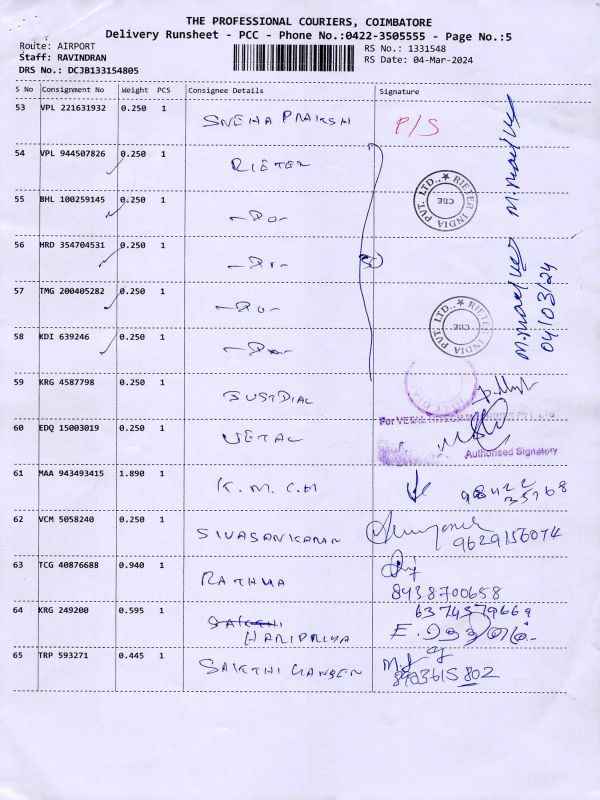 THE PROFESSIONAL COURIERS, COIMBATORE
Delivery Runsheet - PCC - Phone No.:0422-3505555 - Page No.:5
Route: AIRPORT
RS No.: 1331548
Staff: RAVINDRAN
RS Date: 04-Mar-2024
DRS No.: DCJB133154805
S No Consignment No Weight PCS Consignee Details Signature
53 VPL 221631932 0.250 1 SNEHA PRAKSH P/S
54 VPL 944507826 0.250 1 RIETER
55 BHL 100259145 0.250 1 -Do-
56 HRD 354704531 0.250 1 -Do-
57 TMG 200405282 0.250 1 -Do-
58 KDI 639246 0.250 1 -Do-
RIETER INDIA PVT. LTD., ★ CBE
RIETER INDIA PVT. LTD., ★ CBE
04/03/24
59 KRG 4587798 0.250 1 JUSTDIAL
60 EDQ 15003019 0.250 1 VETAL
For VETAL
Authorised Signatory
61 MAA 943493415 1.890 1 K.M.C.H 98422
62 VCM 5058240 0.250 1 SIVASANKARAN
9629156074
63 TCG 40876688 0.940 1 RATHNA
8438700658
64 KRG 249200 0.595 1 HARIPRIYA
6374379669
65 TRP 593271 0.445 1 SAKTHI GANSEN
8903615802